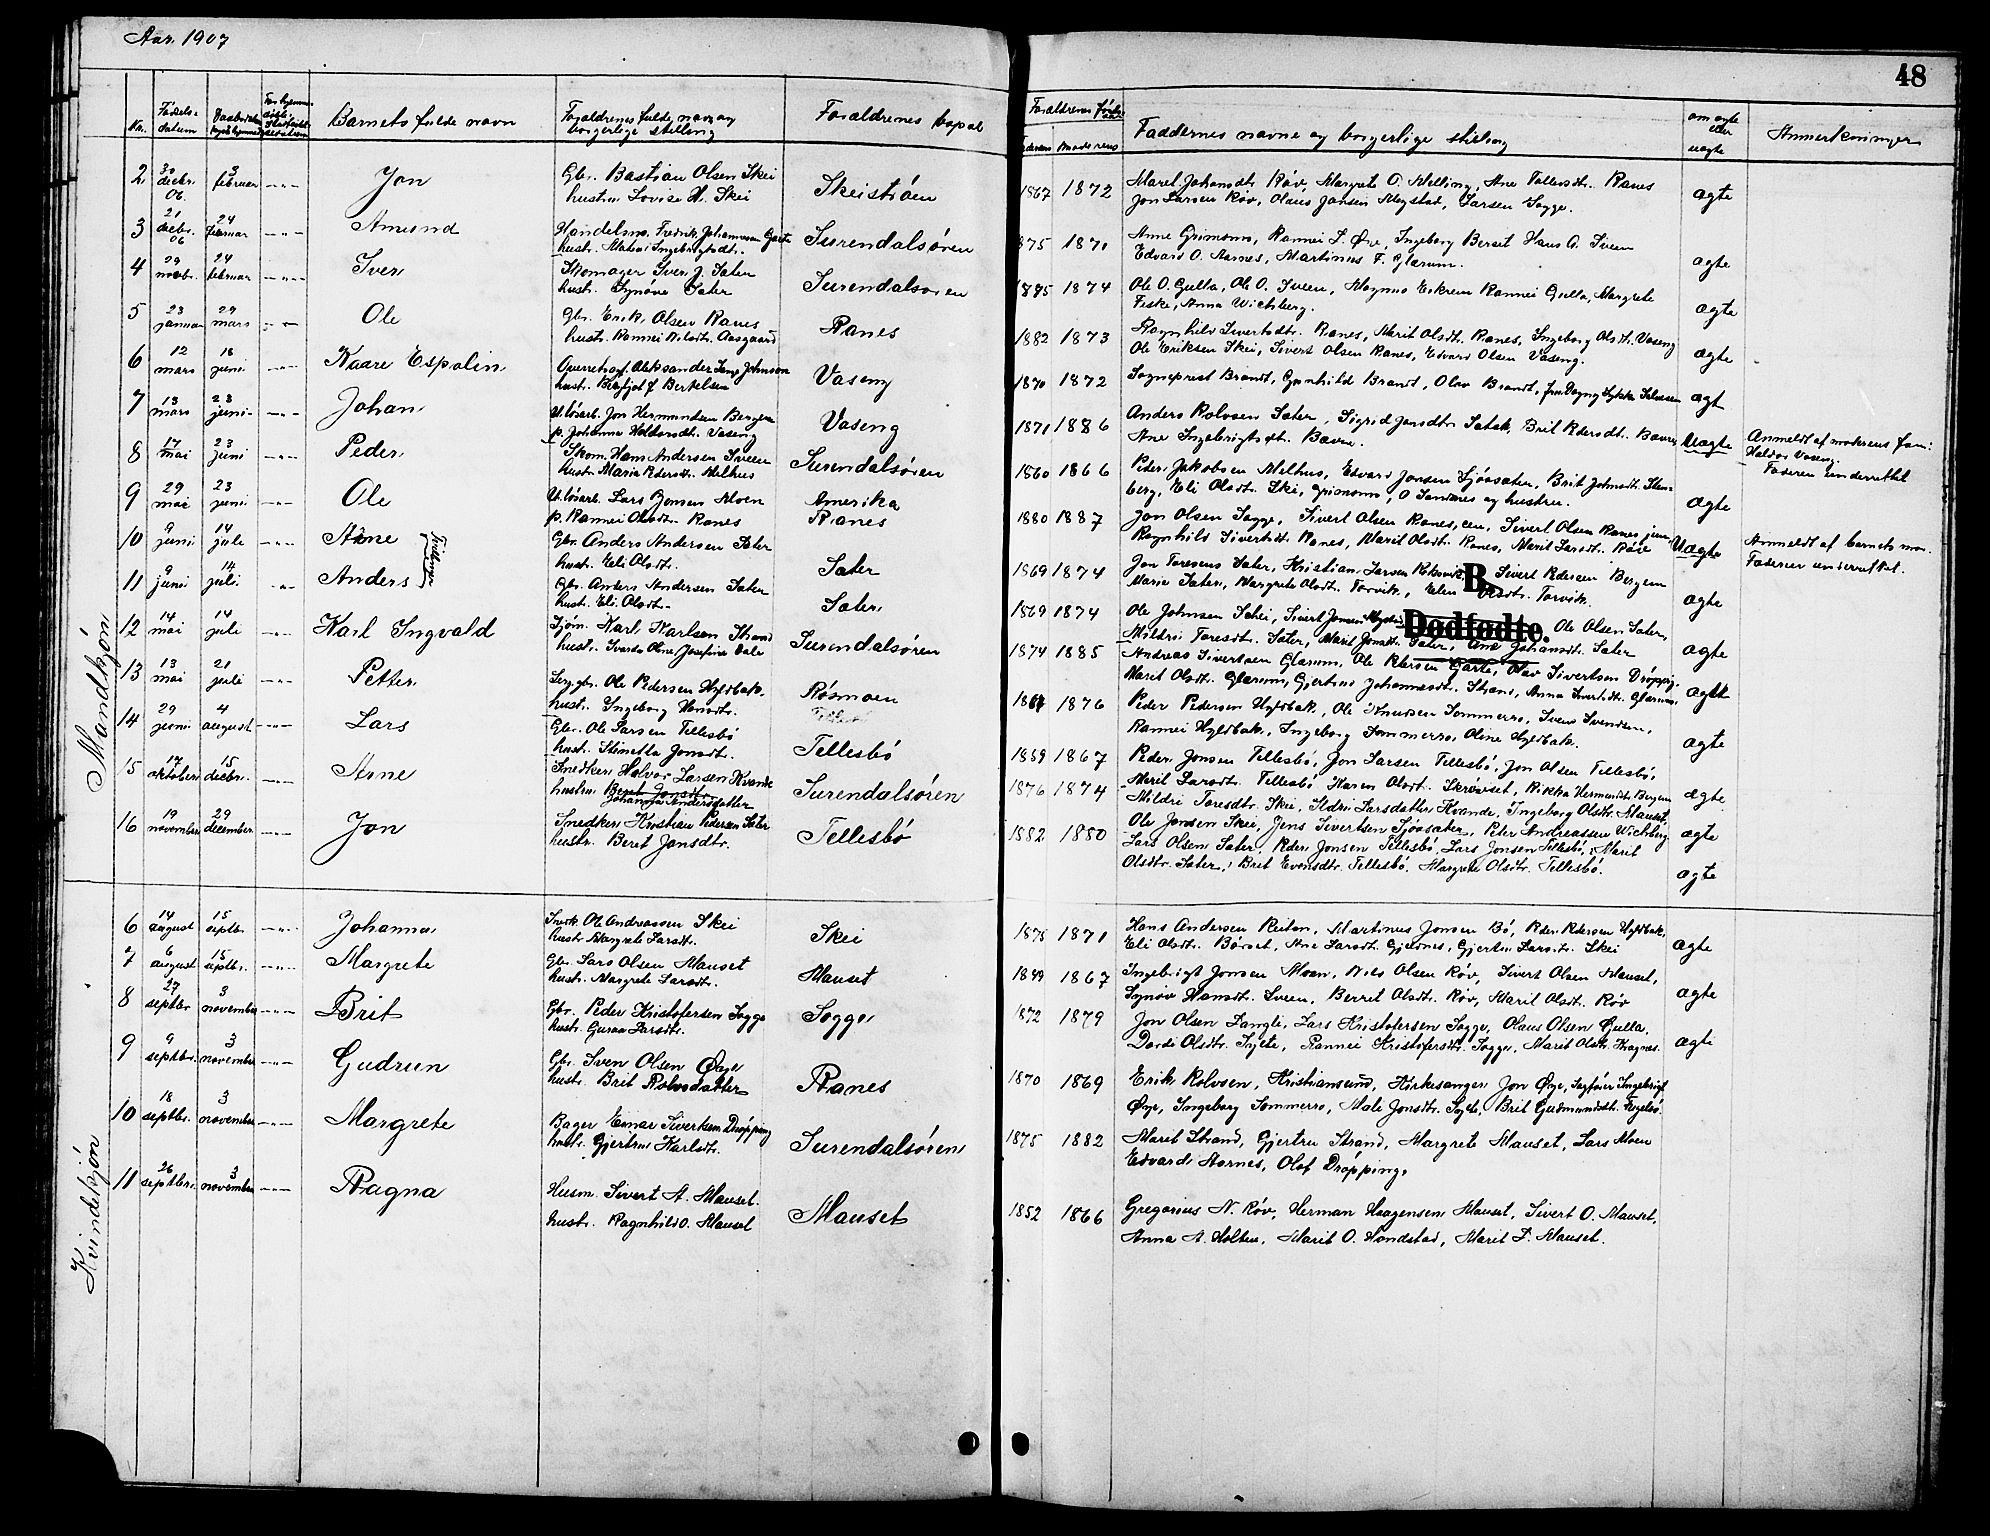 Aar. 1907
48
Nr.
Fødsels-datum
Barnets fulde navn
Forældrenes fulde navn og borgerlige stilling
Forældrenes bopæl
Forældrenes føde
Faderens
Moderens
Faddernes navne og borgerlige stilling
om ægte eller uægte
Anmerkninger
Mandkjøn
2 30 decbr. 06. 3 februar Jon Gbr. Bastian Olsen Skei hustru Lovise H. Skei Skeistrøen 1867 1872 Maret Johansdtr. Røv, Margrete O. Melling, Ane Tallersdtr. Ranes
Jon Larsen Røv, Olaus Jansen Møgstad, Larsen Sogge. ægte
3 21 decbr. 06 24 februar Amund Handelsm. Fredrik Johannesen Gaata hustr. Ingebrigtsdtr. Surendalsøren 1875 1871 Anne Grimsmo, Rannei L. Øie, Ingeborg Berset Hans A. Sveen
Edvard O. Aarnes, Martinus F. Glærum. ægte
4 29 novbr. 24 februar Iver Skomager Iver J. Sæter hust. Synøve Sæter Surendalsøren 1885 1874 Ole O. Gulla, Ole O. Sveen, Magnus Eikrem Rannei Gulla, Margrete
Fiske, Anna Wichberg. ægte
5 23 januar 29 mars Ole Gbr. Erik Olsen Ranes hustr. Rannei Aasgaard Ranes 1882 1873 Ragnhild Sivertsdtr. Ranes, Marit Olsdtr. Ranes, Ingeborg Olsdtr. Vaseng
Ole Eriksen Skei, Sivert Olsen Ranes, Edvard Olsen Vaseng. ægte
6 12 mars 16 juni Kaare Espolin Aleksander Lange Johnson hust. Bergljot f Bertelsen Vaseng 1870 1872 Sogneprest Brandt, Gunhild Brandt, Olav Brandt, fru Dagny Lykke ægt
7 13 mars 23 juni Johan U. løsarb. Jon Hermundsen Bergem p. Johanna Haldorsdtr. Vaseng Vaseng 1871 1886 Anders Rolvsen Sæter, Sigrid Jonsdtr. Brit Pedersdt. Bævre,
Ane Ingebrigtsdt. Bævre. Uægte Anmeldt af moderens far:
Haldor Vaseng.
Faderen underrettet
8 17 mai 23 juni Peder Skom. Hans Andersen Sveen hustr. Maria Pedersdt. Melhus Surendalsøren 1860 1866 Peder Jakobsen Melhus, Edvard Jonsen Sjøasæter, Brit Johnsdt. Stenberg,
Eli Olsdt. Skei, Grimsmo, O Sandnes og hustru. ægte
9 29 mai 23 juni Ole U. løsarb. Lars Jonsen Moen p. Rannei Olsdt. Ranes Amerika Ranes 1880 1887 Jon Olsen Sogge, Sivert Olsen Ranes, sen, Sivert Olsen Ranes jun,
Ragnhild Sivertsdt. Ranes, Marit Olsdt. Ranes, Marit Larsdt. Røv Uægte Anmeldt af barnets mor.
Faderen underrettet.
10 9 juni 14 juli Arne Gbr. Anders Andersen Sæter hust. Eli Olsdt. Sæter 1869 1874 Jon Toresens Sæter, Kristian Larsen Sivert Pedersen Bergem
Marie Sæter, Margrete Olsdt. Torvik, Elen Olsdt. Torvik. ægte
Tvillinger
B.
11 9 juni 14 juli Anders Gbr. Anders Andersen Sæter hust. Eli Olsdt. Sæter 1869 1874 Ole Johnsen Skei, Sivert Jonsen Ole Olsen Sæter,
Mildri Toresdt. Sæter, Marit Jonsdt. Sæter, Ane Johansdt. Sæter ægte
Dødfødte.
12 14 mai 14 juli Karl Ingvald Sjøm. Karl Karlsen Strand hust. Sverda Oline Josefine Dale Surendalsøren 1874 1885 Andreas Sivertsen Glærum, Ole Pedersen Gaarte, Olav Sivertsen Drøpping,
Marit Olsdt. Glærum, Gjertrud Johannesdt. Strand, Anna Sivertsdt. Glærum. ægte
13 13 mai 21 juli Petter Ole Pedersen Hyldbak. hust. Ingeborg Hansdt. Røsmoen 1864 1876 Peder Pedersen Hyldbak, Ole Knudsen Sommerro, Svend Svendsen,
Rannei Hyldbak, Ingeborg Sommerro, Oline Hyldbak. ægte
14 29 juni 4 august Lars Gbr. Ole Larsen Tellesbø hust. Stinetta Jonsdt. Tellesbø 1859 1867 Peder Jonsen Tellesbø, Jon Larsen Tellesbø, Jon Olsen Tellesbø,
Marit Larsdt. Tellesbø Maren Olsdt. Skrøvset, Rikka Hermundsdt. Bergem ægte
15 17 oktober 15 decbr. Arne Snedker Halvor Larsen Kvande hustru Beret Jonsdtr. Johanna Andersdatter Surendalsøren 1876 1874 Mildri Toresdtr. Skei, Sldri Larsdatter Kvande, Ingeborg Olsdtr. Mauset,
Ole Jonsen Skei, Jens Sivertsen Sjøasæter, Peter Andreassen Wichberg ægte
16 19 november 29 december Jon Snedker Kristian Pedersen Sæter hustr. Beret Jonsdtr. Tellesbø 1882 1880 Lars Olsen Sæter, Peder Jonsen Tellesbø, Lars Jonsen Tellesbø, Marit
Olsdtr. Sæter, Brit Evensdtr. Tellesbø, Margrete Olsdtr. Tellesbø. ægte
Kvindekjøn
6 14 august 15 septbr Johanna Snedk. Ole Andreassen Skei hustr Margrete Larsdt. Skei 1875 1871 Hans Andersen Reiten, Martinus Jonsen Bø, Peder Pedersen Hyldbak,
Eli Olsdt. Børset, Ane Larsdt. Gjeldnes, Gjertru Larsdt. Skei ægte
7 6 august 15 septbr. Margrete Gbr. Lars Olsen Mauset hust. Margrete Larsdt. Mauset 1867 Ingebrigt Jonsen Moen, Nils Olsen Røv, Sivert Olsen Mauset,
Synøv Hansdt. Sveen, Berret Olsdt. Røv, Marit Olsdt. Røv ægte
8 27 septbr 3 november Brit Gbr. Peder Kristofersen Sogge hust. Guroa Larsdt. Sogge 1872 1879 Jon Olsen Langli, Lars Kristofersen Sogge, Olaus Olsen Gulla,
Dordi Olsdtr. Syete, Rannei Kristofersdtr. Sogge, Marit Olsdtr. Kragnes. ægte
9 9 septbr. 3 november Gudrun Gbr. Sven Olsen Øye hustr. Brit Rolvsdatter Ranes 1870 1869 Erik Rolvsen, Kristiansund, Kirkesanger Jon Øye, Sagfører Ingebrigt
Øye, Ingeborg Sommerro, Mali Jonsdtr. Syete, Brit Gudmundsdt.
10 18 septbr. 3 november Margrete Bager Einar Sivertsen Drøpping hustr. Gjertru Karlsdt. Surendalsøren 1875 1882 Marit Strand, Gjertru Strand, Margrete Mauset, Lars Moen
Edvard Aarnes, Olaf Drøpping.
11 26 septbr. 3 november Ragna Husm. Sivert A. Mauset. hustr. Ragnhild O. Mauset Mauset 1852 1866 Gregorius N. Røv, Herman Haagensen Mauset, Sivert O. Mauset,
Anna A. Holten, Marit O. Honstad, Marit L. Mauset.